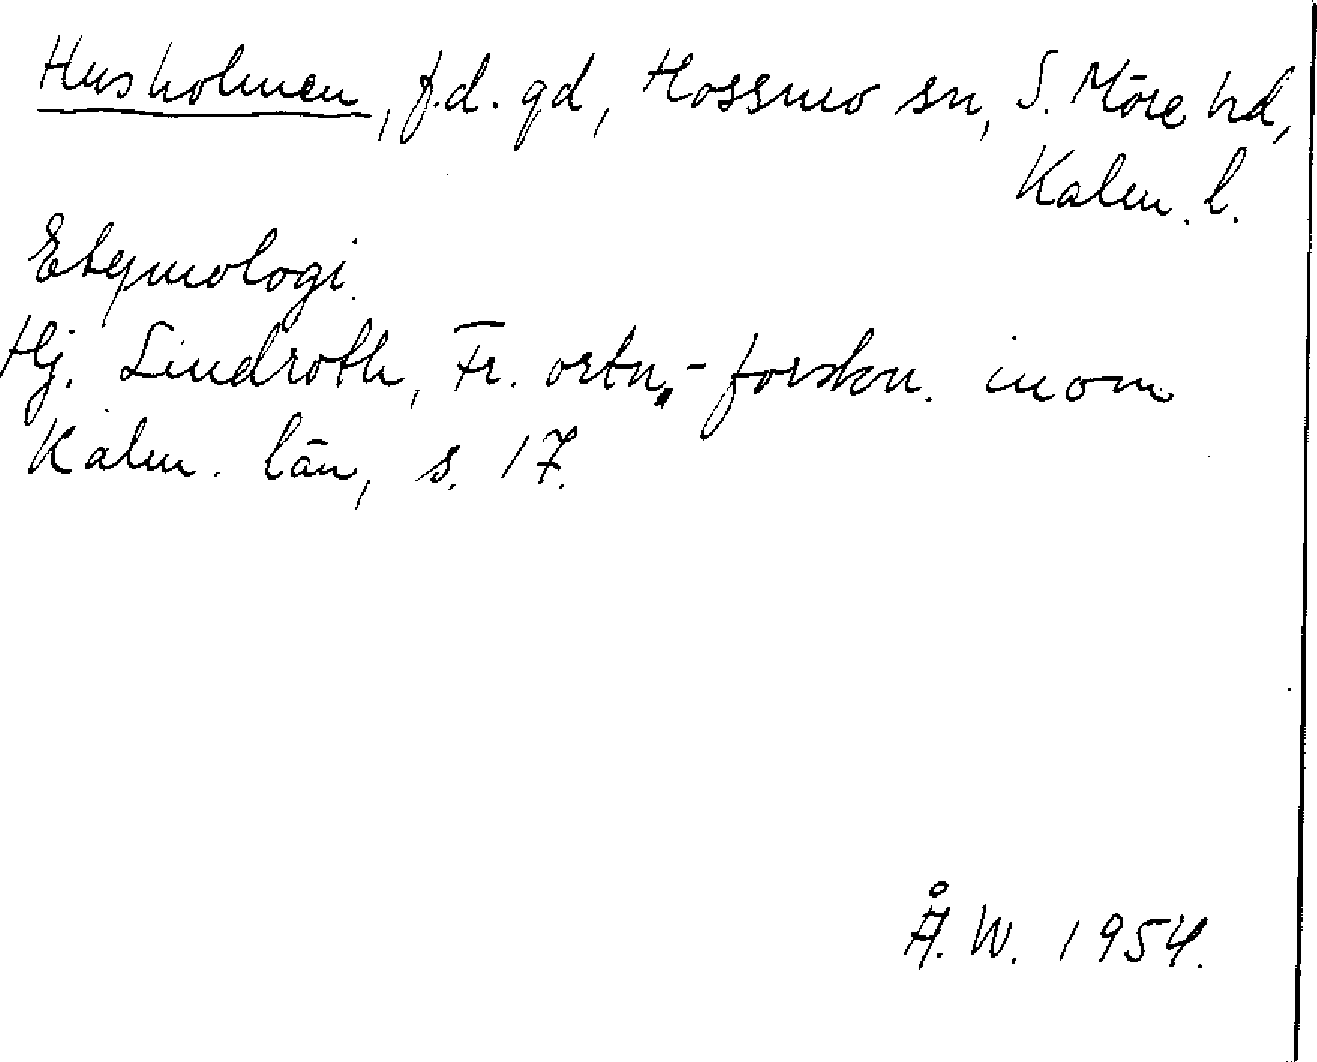 Husholmen, f.d. gd, Hossmo sn, S. Möre hd,
Kalm. l.
Etymologi.
Hj. Lindroth, Fr. ortn.-forskn. inom
Kalm. län, s. 17.
Å.W. 1954.